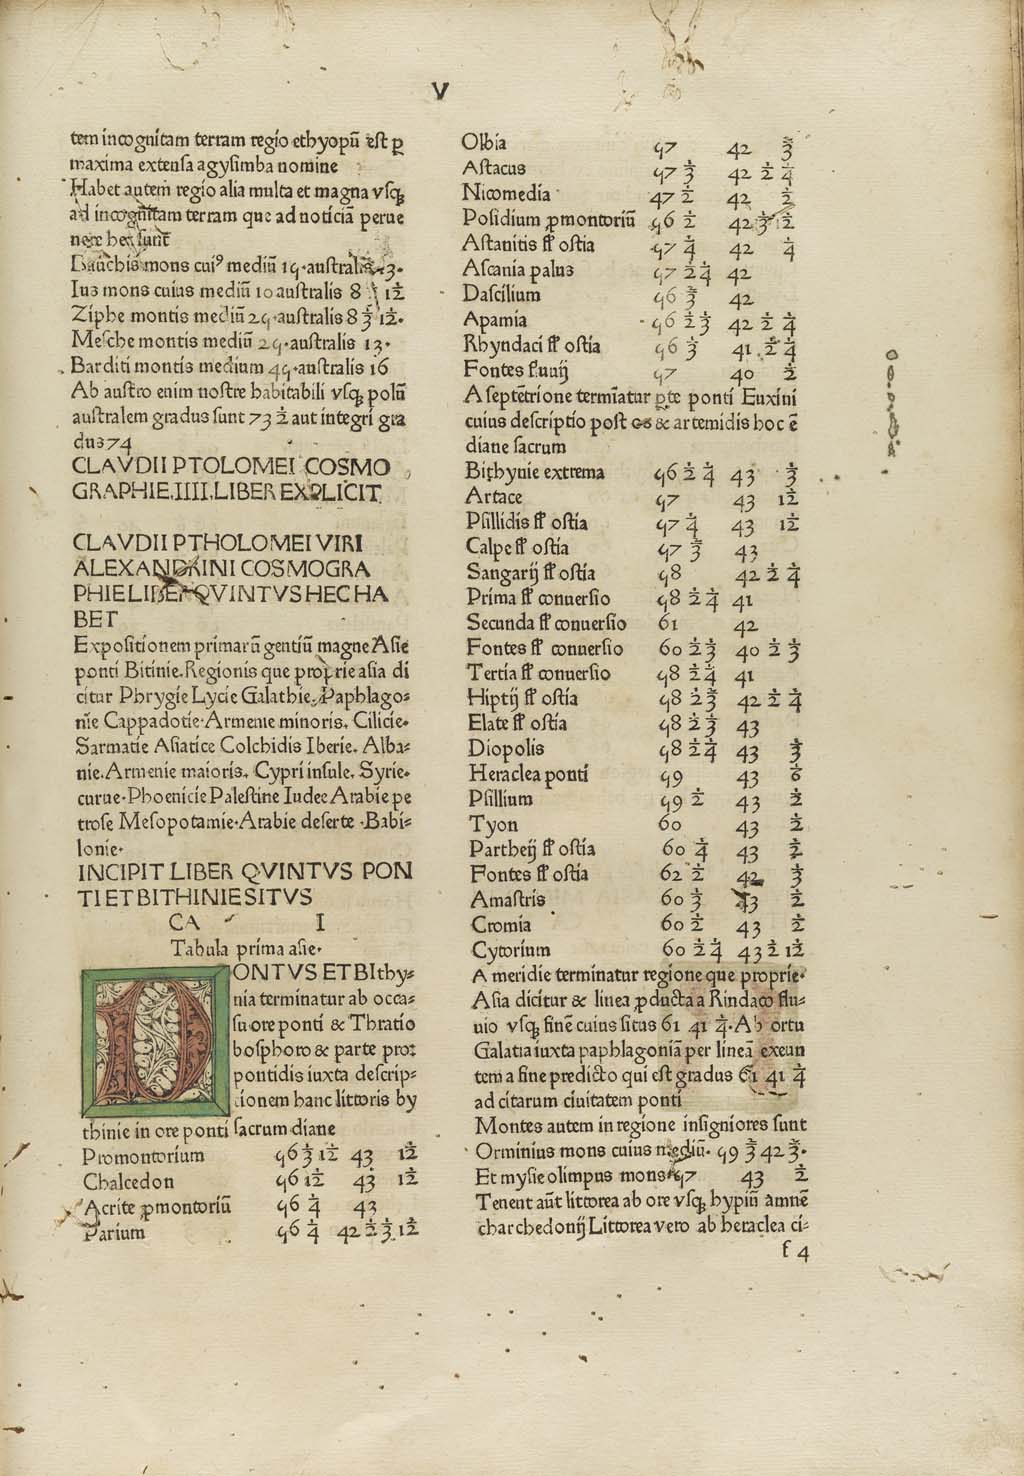 V
tem incognitam terram regio ethyopū est ꝑ
maxima extensa agysimba nomine
Habet autem regio alia multa et magna vsqꝫ
ad incognitam terram que ad noticiā perue
nere hec sunt
Dauchis mons cuiꝰ mediū 15·australis 3·
Ius mons cuius mediū 10 australis 8 1/12
Ziphe montis mediū 25·australis 8 1/3 1/12·
Mesche montis mediū 25·australis 13·
Barditi montis medium 45·australis 16
Ab austro enim nostre habitabili vsqꝫ polū
australem gradus sunt 73 1/2 aut integri gra
dus 74
CLAVDII PTOLOMEI COSMO
GRAPHIE.IIII.LIBER EXPLICIT
CLAVDII PTHOLOMEI VIRI
ALEXANDRINI COSMOGRA
PHIE LIBER QVINTVS HEC HA
BET
Expositionem primarū gentiū magne Asie
ponti Bitinie.Regionis que proprie asia di
citur Phrygie Lycie Galathie.Paphlago-
nie Cappadotie·Armenie minoris. Cilicie·
Sarmatie Asiatice Colchidis Iberie. Alba-
nie.Armenie maioris. Cypri insule. Syrie·
curue·Phoenicie Palestine Iudee Arabie pe
trose Mesopotamie·Arabie deserte ·Babi-
lonie·
INCIPIT LIBER QVINTVS PON
TI ET BITHINIE SITVS
CA I
Tabula prima asie·
PONTVS ET BIthy-
nia terminatur ab occa-
su ore ponti & Thratio
bosphoro & parte pro-
pontidis iuxta descrip-
tionem hanc littoris by
thinie in ore ponti sacrum diane
Promontorium 56 1/3 1/12 43 1/12
Chalcedon 56 1/12 43 1/12
Acrite ꝓmontoriū 56 1/4 43
Parium 56 1/4 42 1/2 1/3 1/12
Olbia 57 42 2/3
Astacus 57 1/3 42 1/2 1/4
Nicomedia 47 1/2 42 1/2
Posidium ꝓmontoriū 56 1/2 42 1/3 1/12
Astanitis fl̄ ostia 57 1/4 42 1/4
Ascania palus 57 1/2 1/4 42
Dascilium 56 2/3 42
Apamia 56 1/2 1/3 42 1/2 1/4
Rhyndaci fl̄ ostia 56 1/3 41 1/2 1/4
Fontes fluuij 57 40 1/2
A septētrione termīatur ꝑte ponti Euxini
cuius descriptio post os & artemidis hoc ē
diane sacrum
Bithynie extrema 56 1/2 1/4 43 1/3
Artace 57 43 1/12
Psillidis fl̄ ostia 57 1/4 43 1/12
Calpe fl̄ ostia 57 2/3 43
Sangarij fl̄ ostia 58 42 1/2 1/4
Prima fl̄ conuersio 58 1/2 1/4 41
Secunda fl̄ conuersio 61 42
Fontes fl̄ conuersio 60 1/2 1/3 40 1/2 1/3
Tertia fl̄ conuersio 58 1/2 1/4 41
Hiptij fl̄ ostia 58 1/2 1/3 42 1/2 1/4
Elate fl̄ ostia 58 1/2 1/3 43
Diopolis 58 1/2 1/4 43 1/3
Heraclea ponti 59 43 1/6
Psillium 59 1/2 43 1/2
Tyon 60 43 1/2
Partheij fl̄ ostia 60 1/4 43 1/2
Fontes fl̄ ostia 62 1/2 42 1/3
Amastris 60 1/3 43 1/2
Cromia 60 1/2 43 1/2
Cytorium 60 1/2 1/4 43 1/2 1/12
A meridie terminatur regione que proprie·
Asia dicitur & linea ꝓducta a Rindaco flu-
uio vsqꝫ finē cuius situs 61 41 1/4·Ab ortu
Galatia iuxta paphlagoniā per lineā exeun
tem a fine predicto qui est gradus 61 41 1/4
ad citarum ciuitatem ponti
Montes autem in regione insigniores sunt
Orminius mons cuius mediū· 59 2/3 42 2/3·
Et mysie olimpus mons 57 43 1/2
Tenent aūt littorea ab ore vsqꝫ hypiū amnē
charchedonij Littorea vero ab heraclea ci-
f 4